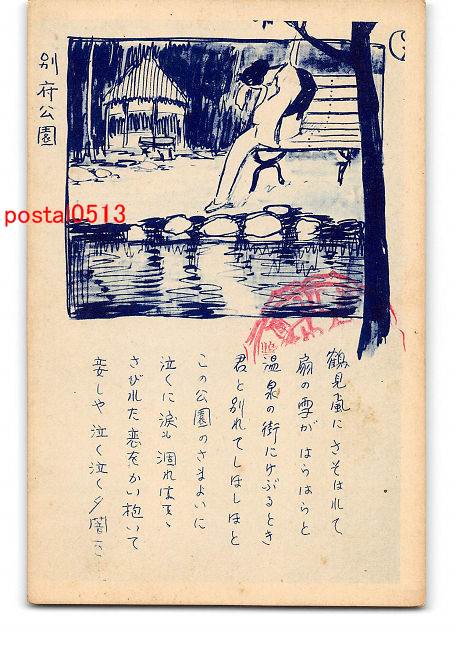 別府公園
postal0513
鶴見風にさそはれて
扇の雪がはらはらと
温泉の街にけぶるとき
君と別れてしほしほと
この公園のさまよいに
泣くに涙も涸れはてゝ
さびれた恋をかい抱いて
妾しや泣く泣く夕闇に